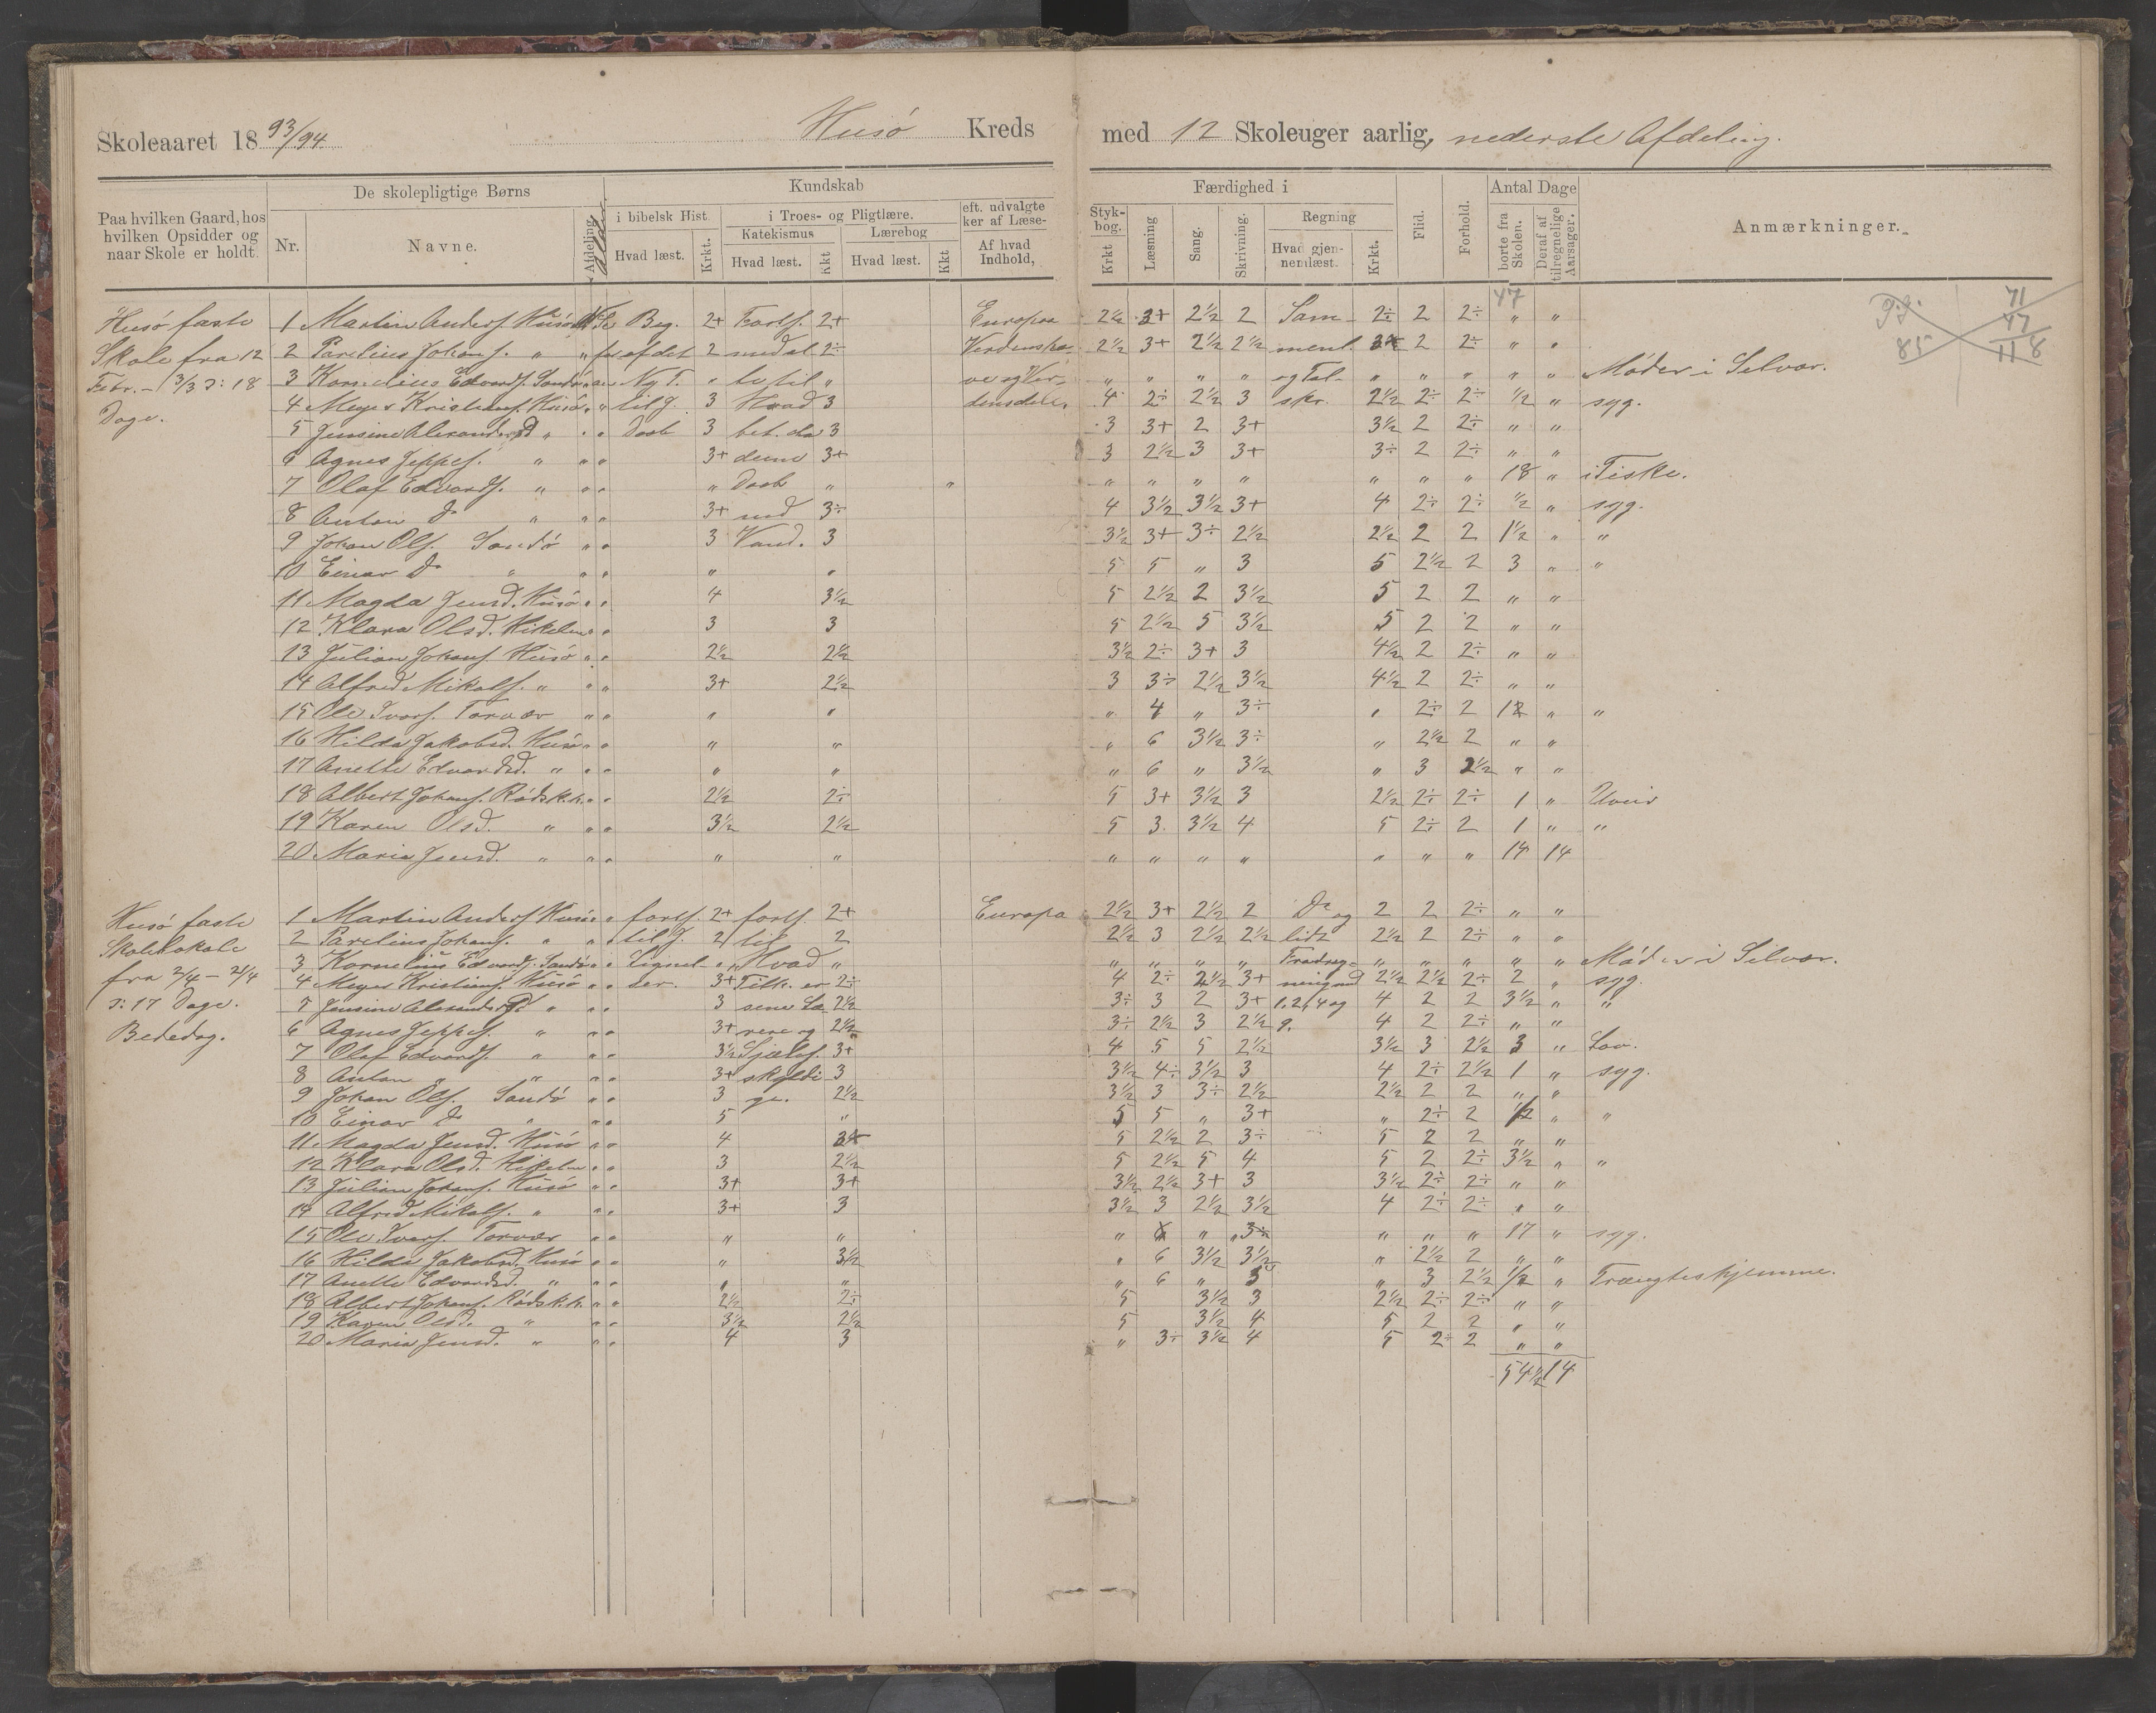 Skoleaaret 1893/94 Husö Kreds med 12 Skoleuger aarlig, nederste Afdeling.
Paa hvilken Gaard, hos hvilken Opsidder og naar Skole er holdt.
De skolepligtige Børns
Nr. Navne. Afdeling
Kundskab
i bibelsk Hist. Hvad læst. Krkt.
i Troes- og Pligtlære.
Katekismus Hvad læst. Kkt
Lærebog Hvad læst. Kkt
eft. udvalgte ker af Læse-
Af hvad Indhold,
Færdighed i
Styk-bog. Krkt Læsning Sang. Skrivning.
Regning Hvad gjen-nemlæst. Krkt.
Flid. Forhold.
Antal Dage borte fra Skolen. Deraf af tilregnelige Aarsager.
Anmærkninger.
47
71
47
118
85
Husö faste
Skole fra 12
Febr. - 3/3 ɔ: 18
Dage.
1 Martin Anders. Husö Beg. 2+ Forts. 2+ Europa 2½ 3+ 2½ 2 Sam- 2÷ 2 2÷ " "
2 Parelius Johans. " " af det 2 med at 2÷ Verdensha- 2½ 3+ 2½ 2½ ment. 2 2÷ " "
3 Kornelius Edvards. Sandö " Ny T. " " " " " " og Tal- " " " " " Møder i Selvær.
4 Meyer Kristians. Husö " " til J. 3 Hvad 3 densdele. 4 2÷ 2½ 3 skr. 2½ 2÷ 2÷ ½ " syg.
5 Jensine Alexandersd. " " " Daab 3 bet. da 3 3 3+ 2 3+ 3½ 2 2÷ " "
6 Agnes Jeppes. " " " 3+ denne 3+ 3 2½ 3 3+ 3÷ 2 2÷ " "
7 Olaf Edvards. " " " " Daab " " " " " " " " " 18 " i Fiske.
8 Anton Do " " " 3+ med 3÷ 4 3½ 3½ 3+ 4 2÷ 2÷ ½ " syg.
9 Johan Ols. Sandö " " 3 Vand. 3 3½ 3+ 3÷ 2½ 2½ 2 2 1½ " "
10 Einar Do " " " " " 5 5 " 3 5 2½ 2 3 " "
11 Magda Jensd. Husö " " 4 3½ 5 2½ 2 3½ 5 2 2 " "
12 Klara Olsd. Hikelm " " 3 3 5 2½ 5 3½ 5 2 2 " "
13 Julian Johans. Husö " " 2½ 2½ 3½ 2÷ 3+ 3 4½ 2 2÷ " "
14 Alfred Mikals. " " " 3+ 2½ 3 3÷ 2½ 3½ 4½ 2 2÷ " "
15 Ole Ivars. Torvær " " " " " 4 " 3÷ " 2÷ 2 12 " "
16 Hilda Jakobsd. Husö " " " " " 6 3½ 3÷ " 2½ 2 " "
17 Anette Edvardsd. " " " " " " 6 " 3½ " 3 2½ " "
18 Albert Johans. Rödsk.h. " " 2½ 2÷ 5 3+ 3½ 3 2½ 2÷ 2÷ 1 " Uveir
19 Karen Olsd. " " " 3½ 2½ 5 3 3½ 4 5 2÷ 2 1 " "
20 Maria Jensd. " " " " " " " " " " " " 14 14
Husö faste
Skolelokale
fra 2/4 - 21/4
ɔ: 17 Dage.
Bededag.
1 Martin Anders. Husö " " forts. 2+ forts. 2+ Europa 2½ 3+ 2½ 2 Do og 2 2 2÷ " "
2 Parelius Johans. " " " til J. 2 til 2 2½ 3 2½ 2½ lidt 2½ 2 2÷ " "
3 Kornelius Edvards. Sandö " " Lignel- " Hvad " " " " " Fradrag- " " " " " Møder i Selvær.
4 Meyer Kristians. Husö " " ser. 3+ Filk. er 2÷ 4 2÷ 2½ 3+ ning med 2½ 2½ 2÷ 2 " syg.
5 Jensine Alexandersd. " " " 3 sene La 2½ 3÷ 3 2 3+ 1.2,4 og 4 2 2 3½ " "
6 Agnes Jeppes. " " " 3+ rere og 2½ 3÷ 2½ 3 2½ 9. 4 2 2÷ " "
7 Olaf Edvards. " " " 3½ Sjæles. 3+ 4 5 5 2½ 3½ 3 2½ 3 " Lov.
8 Anton " " " " 3+ skyldi 3 3½ 4÷ 3½ 3 4 2÷ 2½ 1 " syg.
9 Johan Ols. Sandö " " 3 ge. 2½ 3½ 3 3÷ 2½ 2½ 2 2 " "
10 Einar Do " " " 5 " 5 5 " 3+ " 2÷ 2 ½ " "
11 Magda Jensd. Husö " " 4 5 2½ 2 3÷ 5 2 2 " "
12 Klara Olsd. Hikelm " " 3 2½ 5 2½ 5 4 5 2 2÷ 3½ " "
13 Julian Johans. Husö " " 3+ 3+ 3½ 2½ 3+ 3 3½ 2÷ 2÷ " "
14 Alfred Mikals. " " " 3+ 3 3½ 3 2½ 3½ 4 2÷ 2÷ " "
15 Ole Ivars. Torvær " " " " " " " " " 17 " syg.
16 Hilda Jakobsd. Husö " " " 3½ " 6 3½ 3½ " 2½ 2 " "
17 Anette Edvardsd. " " " " " " 6 " 3 " 3 2½ ½ " Trængtes hjemme.
18 Albert Johans. Rödsk.h. " " 2½ 2÷ 5 3½ 3 2½ 2÷ 2÷ " "
19 Karen Olsd. " " " 3½ 2½ 5 3½ 4 5 2 2 " "
20 Maria Jensd. " " " 4 3 " 3÷ 3½ 4 5 2 2 " "
54½ 14